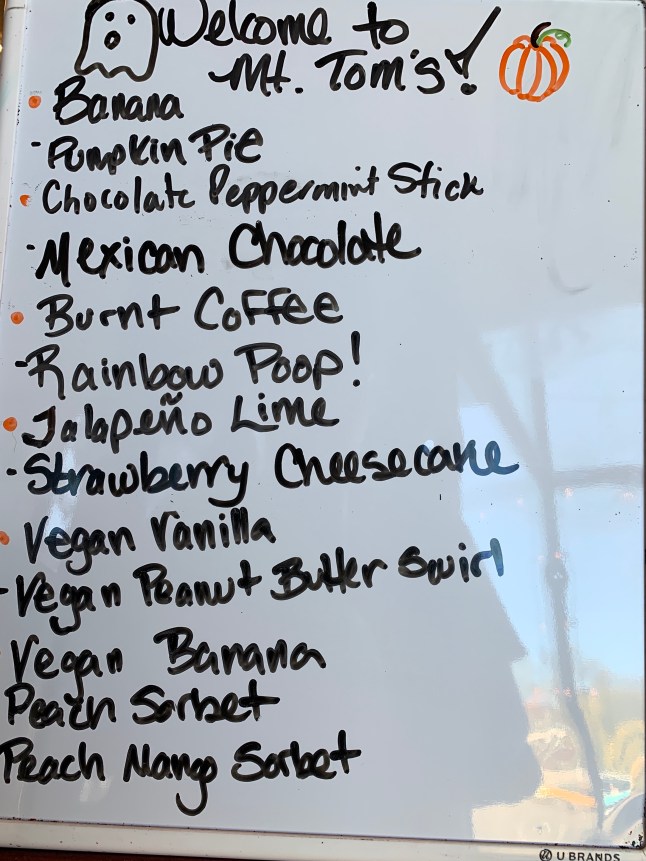 Welcome to
Mt. Tom's!
Banana
Pumpkin Pie
Chocolate Peppermint Stick
Mexican Chocolate
Burnt Coffee
Rainbow Poop!
Jalapeño Lime
Strawberry Cheesecake
Vegan Vanilla
Vegan Peanut Butter Swirl
Vegan Banana
Peach Sorbet
Peach Mango Sorbet
U BRANDS